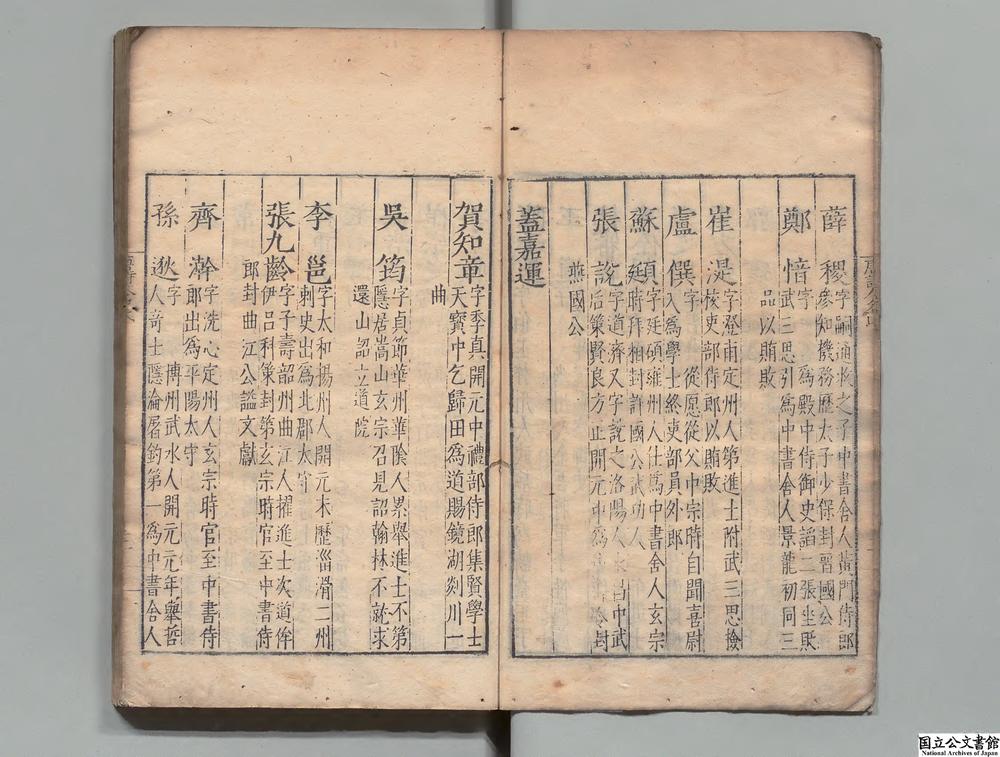 薛稷字嗣通收之子中書舍人黃門侍郎
參知機務歷太子少保封晉國公
鄭愔字 爲殿中侍御史諂二張坐貶
武三思引爲中書舍人景龍初同三
品以賄敗
崔湜字澄甫定州人第進士附武三思檢
校吏部侍郎以賄敗
盧僎字 從愿從父中宗時自聞喜尉
入爲學士終吏部員外郎
蘇頲字廷碩雍州人仕爲中書舍人玄宗
廷時拜相封許國公武功人
張說字道濟又字說之洛陽人永昌中武
后策賢良方正開元中爲中書令封
燕國公
蓋嘉運
賀知章字季真開元中禮部侍郎集賢學士
天寶中乞歸田爲道賜鏡湖剡川一
曲
吳筠字貞節華州華陰人累舉進士不第
隱居嵩山玄宗召見詔翰林不就求
還山詔立道院
李邕字太和揚州人開元末歷淄滑二州
刺史出爲北郡太守
張九齡字子壽韶州曲江人擢進士次道侔
伊呂科策封第玄宗時官至中書侍
郎封曲江公謚文獻
齊澣字洗心定州人玄宗時官至中書侍
郎出爲平陽太守
孫逖字 博州武水人開元元年舉哲
人奇士隱淪屠釣第一爲中書舍人
国立公文書館
National Archives of Japan